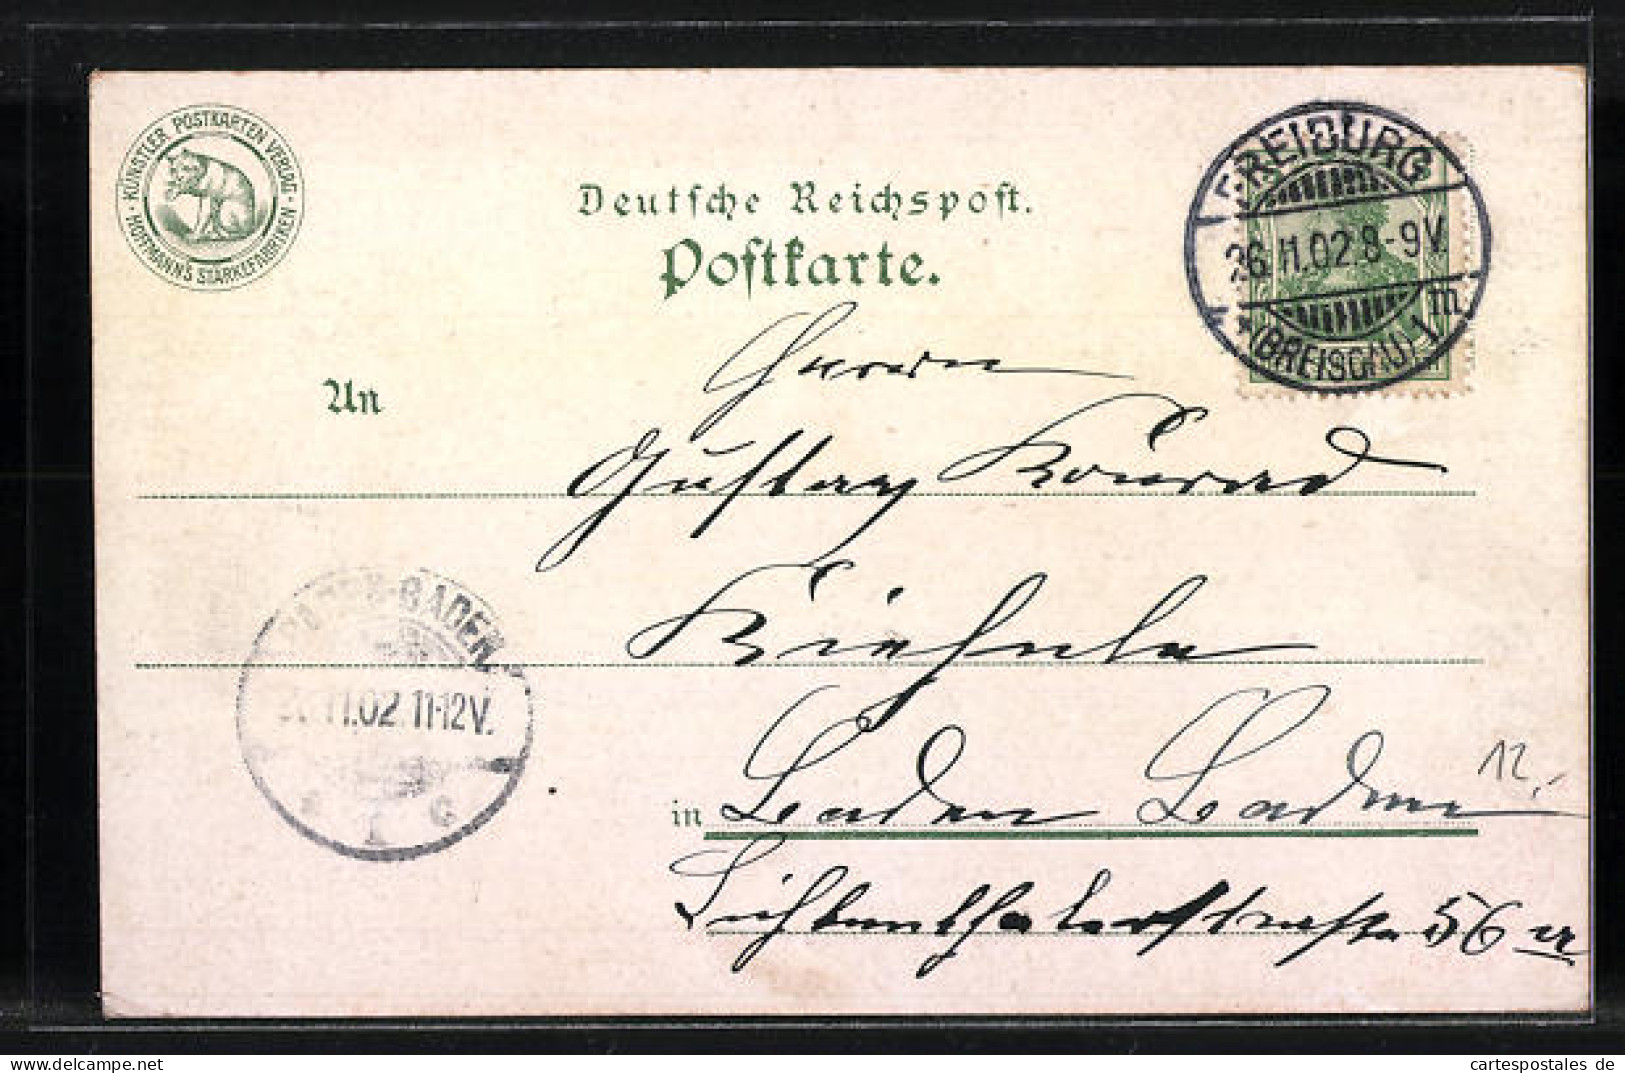 KÜNSTLER POSTKARTEN VERLAG
HOFFMANN'S STÄRKEFABRIKEN
Deutsche Reichspost.
Postkarte.
FREIBURG
26.11.02.8-9V.
(BREISGAU) 1 m
An
Herrn
Gustav Konrad
Kiehnle
BADEN-BADEN
11.02.11-12V.
in Baden Baden
12,-
Lichtenthalerstrasse 56
cartespostales de